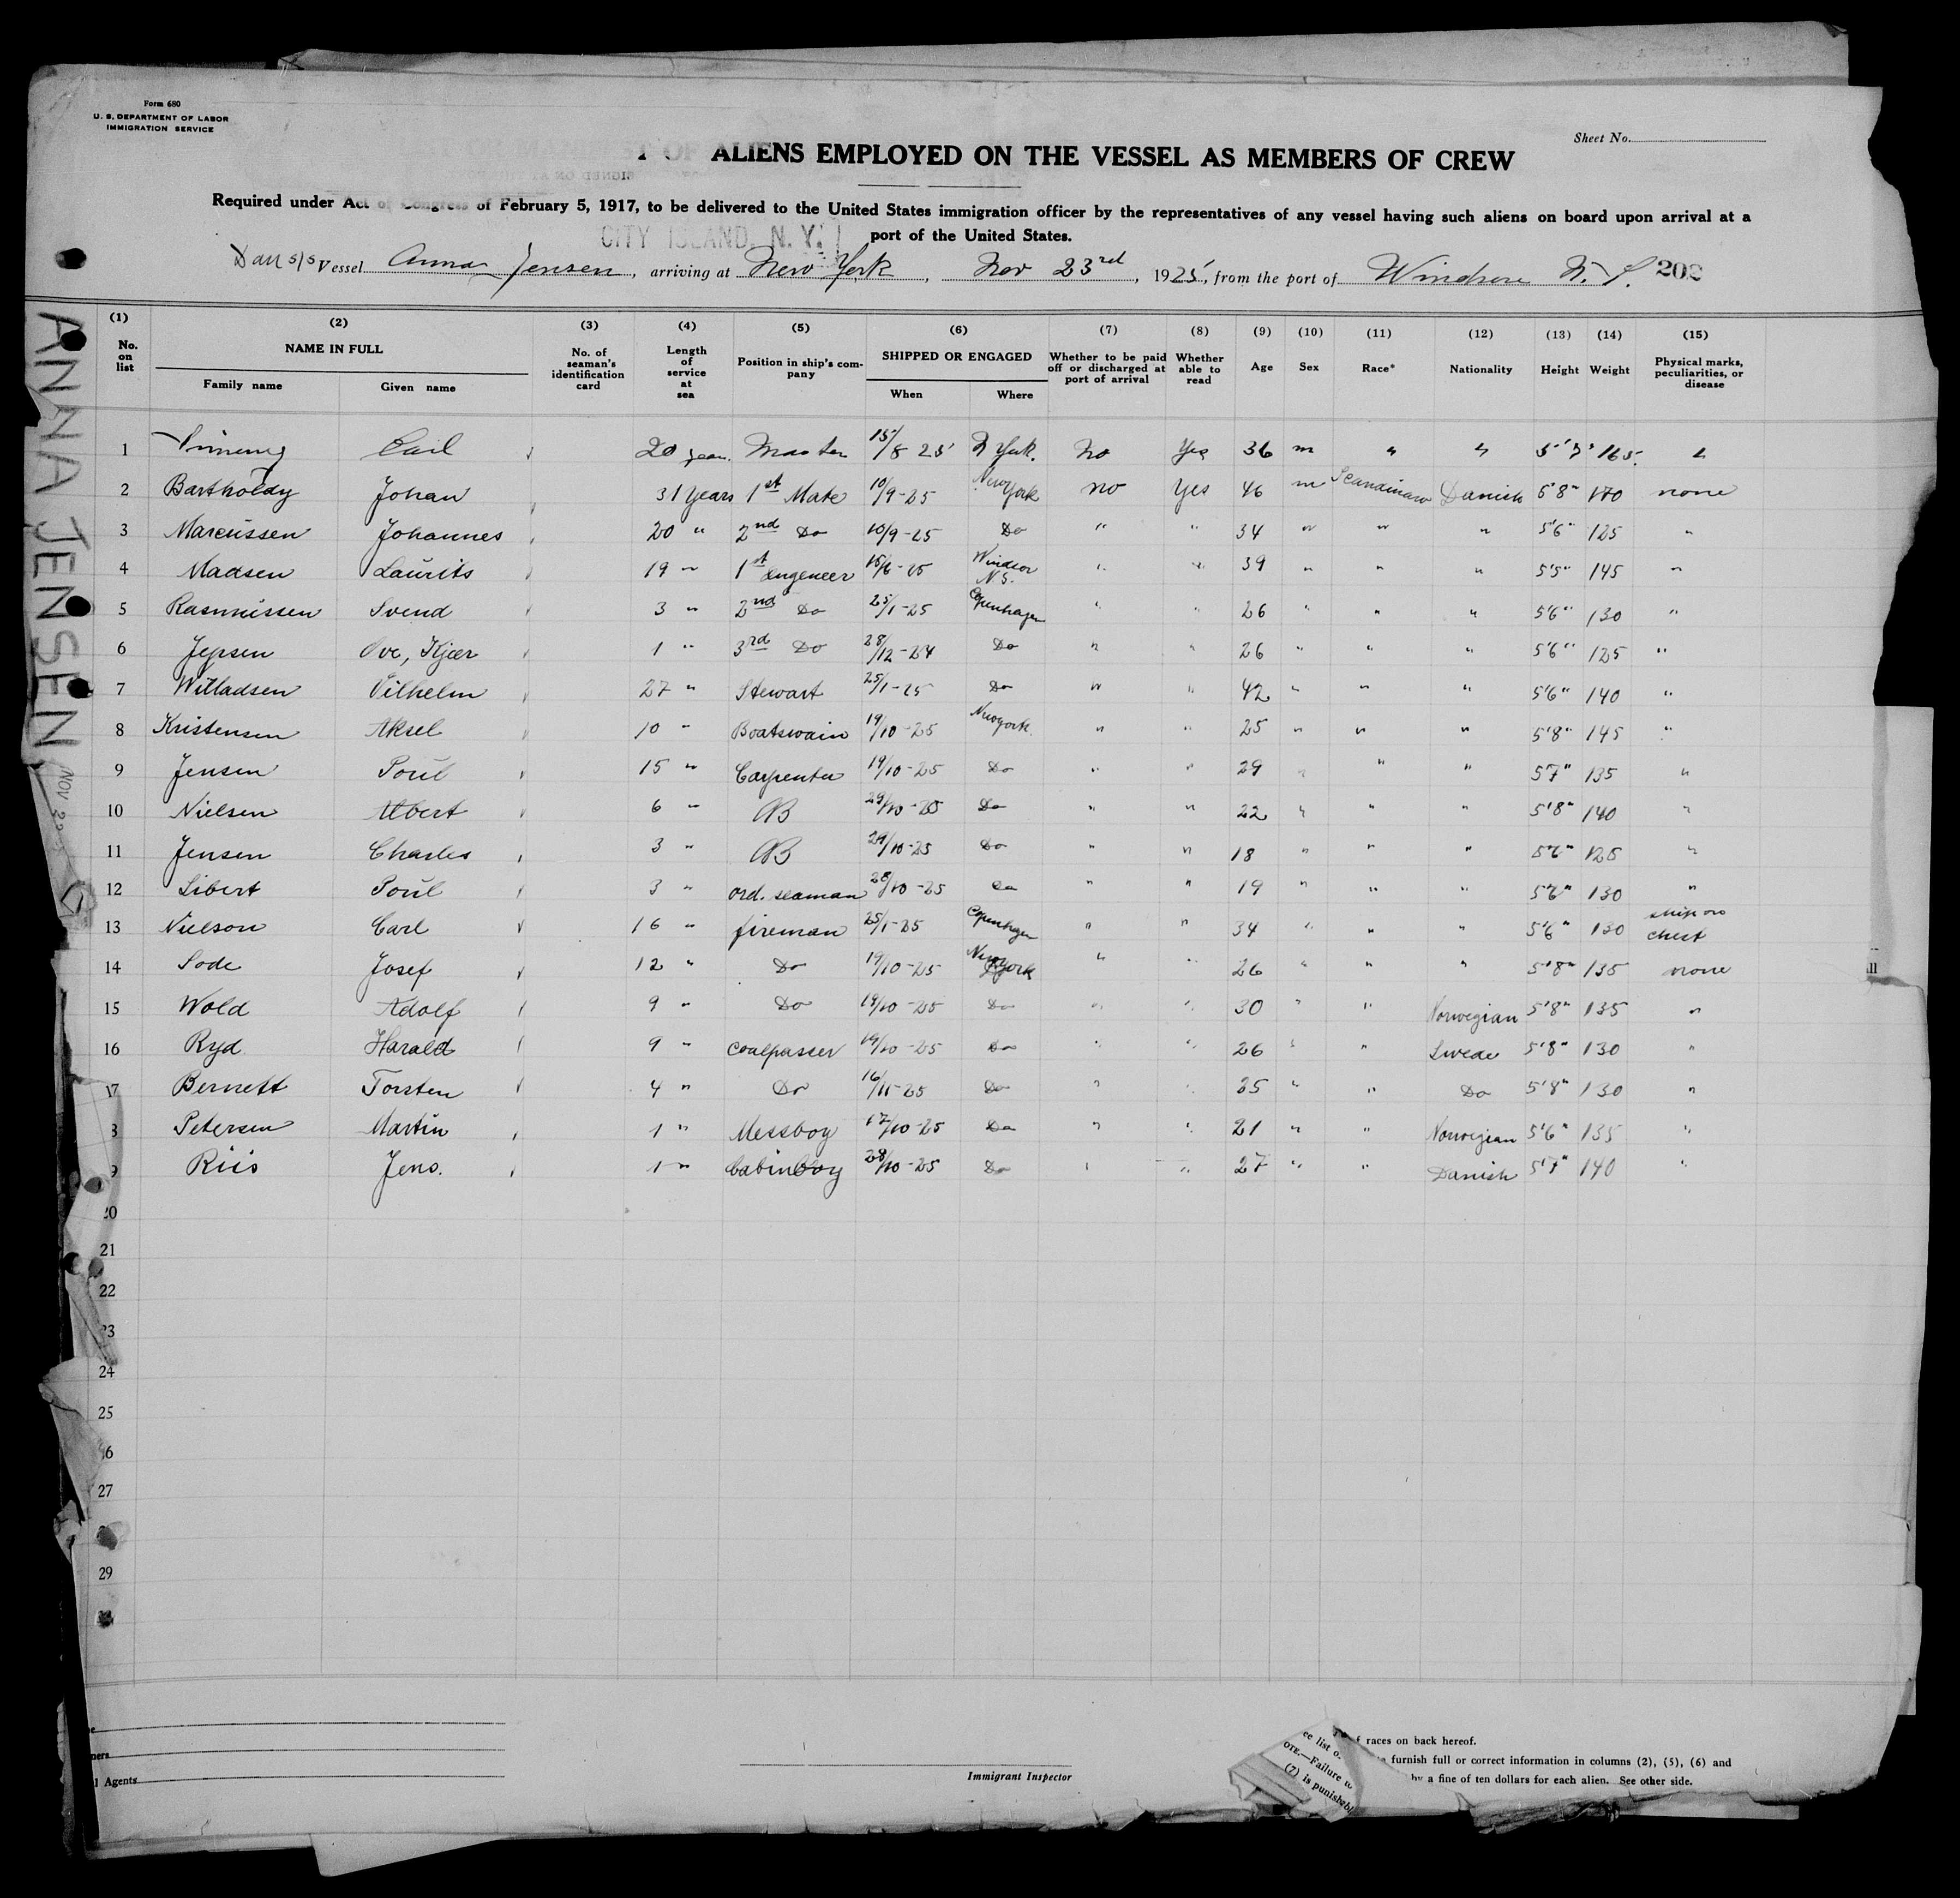 Form 680
U. S. DEPARTMENT OF LABOR
IMMIGRATION SERVICE
Sheet No.
ALIENS EMPLOYED ON THE VESSEL AS MEMBERS OF CREW
Required under Act of Congress of February 5, 1917, to be delivered to the United States immigration officer by the representatives of any vessel having such aliens on board upon arrival at a
port of the United States.
CITY ISLAND, N. Y.
Dan s/s Vessel Anna Jensen, arriving at New York, Nov 23rd, 1925, from the port of Windsor N. S. 202
ANNA JENSEN
(1) (2) (3) (4) (5) (6) (7) (8) (9) (10) (11) (12) (13) (14) (15)
No. on list NAME IN FULL Family name Given name No. of seaman's identification card Length of service at sea Position in ship's company SHIPPED OR ENGAGED When Where Whether to be paid off or discharged at port of arrival Whether able to read Age Sex Race* Nationality Height Weight Physical marks, peculiarities, or disease
1 20 years Master 15/8 25 N York. No Yes 36 m " " 165 "
2 Bartholdy Johan 31 years 1st Mate 10/9-25 New York no Yes 46 m Scandinav Danish 5'8" 170 none
3 Marcussen Johannes 20 " 2nd Do 10/9-25 Do " " 34 " " " 5'6" 125 "
4 Madsen Laurits 19 " 1st Engeneer Windsor N.S. " " 39 " " " 5'5" 145 "
5 Rasmussen Svend 3 " 2nd Do 25/1-25 Copenhagen " " 26 " " " 5'6" 130 "
6 Jepsen Ove, Kjær 1 " 3rd Do 28/12-24 Do " " 26 " " " 5'6" 125 "
7 Willadsen Vilhelm 27 " Stewart 25/1-25 Do " " 42 " " " 5'6" 140 "
8 Kristensen Aksel 10 " Boatswain 19/10-25 Newyork " " 25 " " " 5'8" 145 "
9 Jensen Poul 15 " Carpenter 19/10-25 Do " " 29 " " " 5'7" 135 "
10 Nielsen Albert 6 " AB 29/10-25 Do " " 22 " " " 5'8" 140 "
11 Jensen Charles 3 " AB 29/10-25 Do " " 18 " " " 5'6" 125 "
12 Sibert Poul 3 " ord. seaman 28/10-25 Do " " 19 " " " 5'6" 130 "
13 Nielson Carl 16 " fireman 25/1-25 Copenhagen " " 34 " " " 5'6" 130 chest
14 Sode Josef 12 " Do 19/10-25 New york " " 26 " " " 5'8" 135 none
15 Wold Adolf 9 " Do 19/10-25 Do " " 30 " " Norwegian 5'8" 135 "
16 Ryd Harald 9 " Coalpasser 19/10-25 Do " " 26 " " Swede 5'8" 130 "
17 Bernett Torsten 4 " Do Do " " 25 " " Do 5'8" 130 "
8 Petersen Martin 1 " Messboy 17/10-25 Do " " 21 " " Norwegian 5'6" 135 "
9 Riis Jens. 1 " Cabinboy 28/10-25 Do " " 27 " " Danish 5'7" 140 "
20
21
22
23
24
25
26
27
29
Agents
Immigrant Inspector
races on back hereof.
furnish full or correct information in columns (2), (5), (6) and
by a fine of ten dollars for each alien. See other side.
ee list o
OTE.—Failure
(7) is punishabl